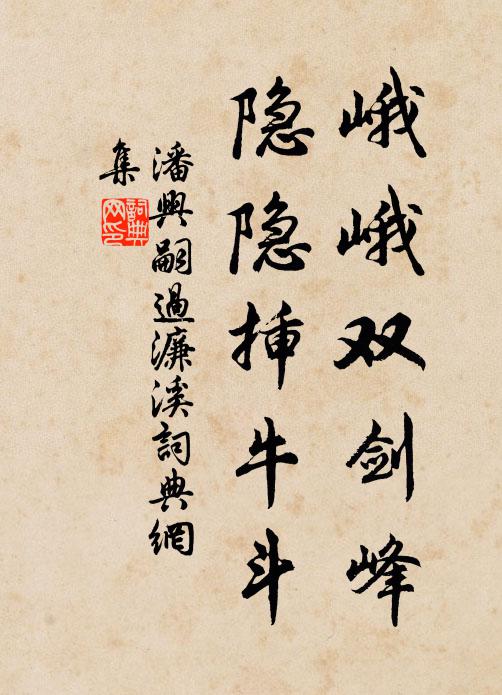 峨峨双剑峰
隐隐揷牛斗
潘興嗣過濂溪詞典網
集
詞典
网印